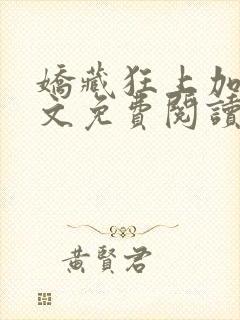 嬌藏狂上加
文免費閱讀
黃賢君